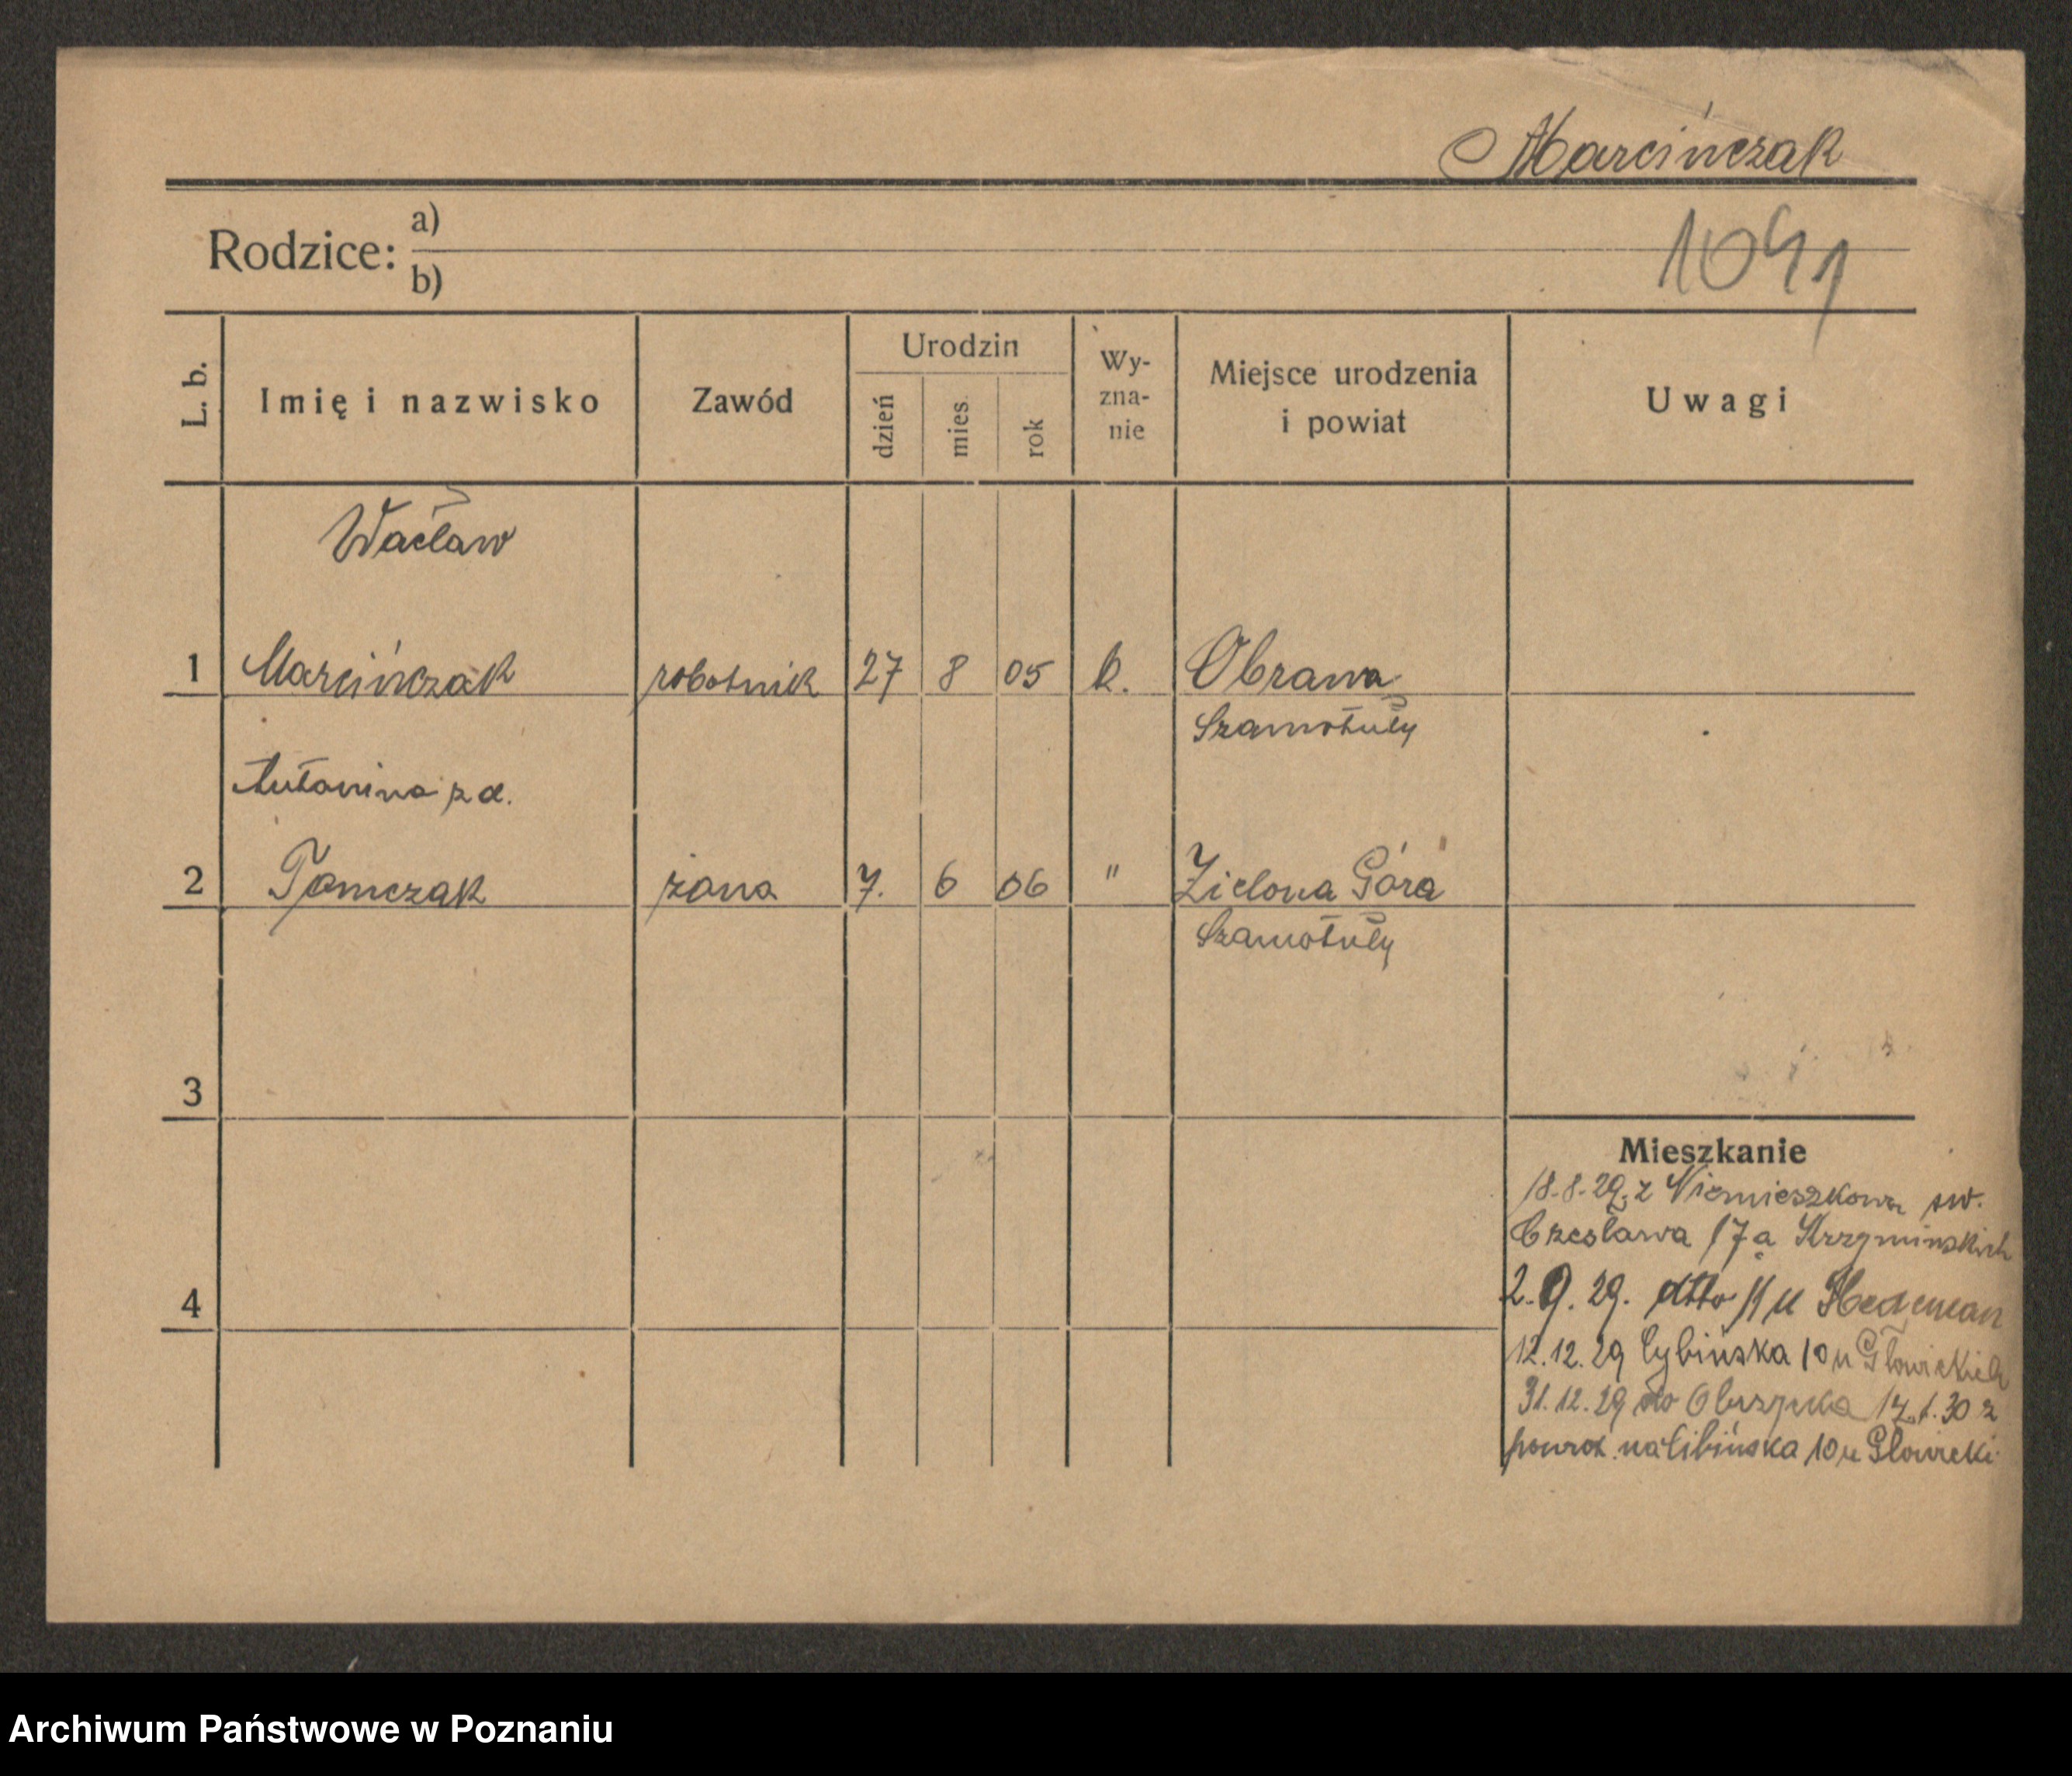 Marcińczak
Rodzice: a)
b)
1041
L. b.
Imię i nazwisko
Zawód
Urodzin
dzień
mies.
rok
Wy-
zna-
nie
Miejsce urodzenia
i powiat
Uwagi
Wacław
1 Marcińczak robotnik 27 8 05 k. Obrawa
Szamotuły
Antonina z d.
2 Tomczak żona 7. 6 06 " Zielona Góra
Szamotuły
3
4
Mieszkanie
18.8.29. z Niemieszkowa św.
Czesława 17a Krzyminskich
2.9.29. dtto 11 u Hedeman
12.12.29 Cybińska 10 u Głowickich
31.12.29 do Obrzycka 14.1.30 z
powrot. na Cibińska 10 u Głowicki
Archiwum Państwowe w Poznaniu